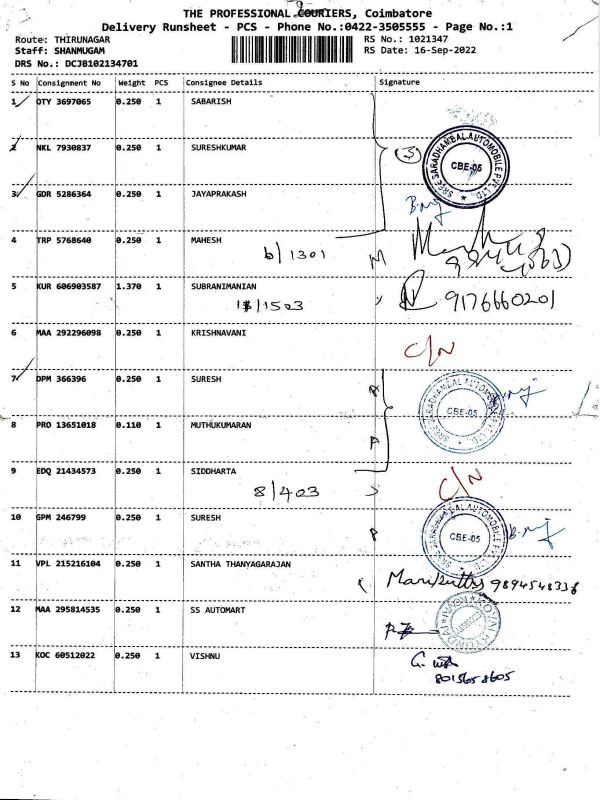 THE PROFESSIONAL COURIERS, Coimbatore
Delivery Runsheet - PCS - Phone No.:0422-3505555 - Page No.:1
Route: THIRUNAGAR RS No.: 1021347
Staff: SHANMUGAM RS Date: 16-Sep-2022
DRS No.: DCJB102134701
S No Consignment No Weight PCS Consignee Details Signature
1 OTY 3697065 0.250 1 SABARISH
2 NKL 7930837 0.250 1 SURESHKUMAR
(3) SREE SARADHAMBAL AUTOMOBILE PVT LTD CBE-05
3 GDR 5286364 0.250 1 JAYAPRAKASH
4 TRP 5768640 0.250 1 MAHESH
6/1301 M
5 KUR 606903587 1.370 1 SUBRANIMANIAN
/1503 9176660201
6 MAA 292296098 0.250 1 KRISHNAVANI
C/N
7 DPM 366396 0.250 1 SURESH
SREE SARADHAMBAL AUTOMOBILE PVT LTD CBE-05
8 PRO 13651018 0.110 1 MUTHUKUMARAN
9 EDQ 21434573 0.250 1 SIDDHARTA
8/403 C/N
10 GPM 246799 0.250 1 SURESH
SREE SARADHAMBAL AUTOMOBILE PVT LTD CBE-05
11 VPL 215216104 0.250 1 SANTHA THANYAGARAJAN
Marikutty 9894548338
12 MAA 295814535 0.250 1 SS AUTOMART
13 KOC 60512022 0.250 1 VISHNU
8015658605